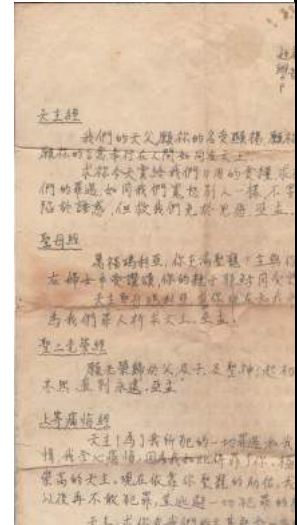 天主經
我們的天父願你的名受顯揚,願你
願你的旨意奉行在人間如同在天上.
求你今天賞給我們日用的食糧,求
們的罪過,如同我們寬恕別人一樣,不
陷於誘惑,但救我們免於凶惡,亞孟.
聖母經
萬福瑪利亞,你充滿聖寵!主與你
在婦女中受讚頌,你的親子耶穌同受
天主聖母瑪利亞,求你現在
為我們罪人祈求天主.亞孟.
聖三光榮經
願光榮歸於父,及子,及聖神!起初
亦然,直到永遠.亞孟
上等痛悔經
天主!為了我所犯的一切罪過
情,我全心痛悔,因為我如此得罪了你,
崇高的天主,現在依靠你聖寵的助佑,
以後再不敢犯罪,並逃避一切犯罪的
天主,求你